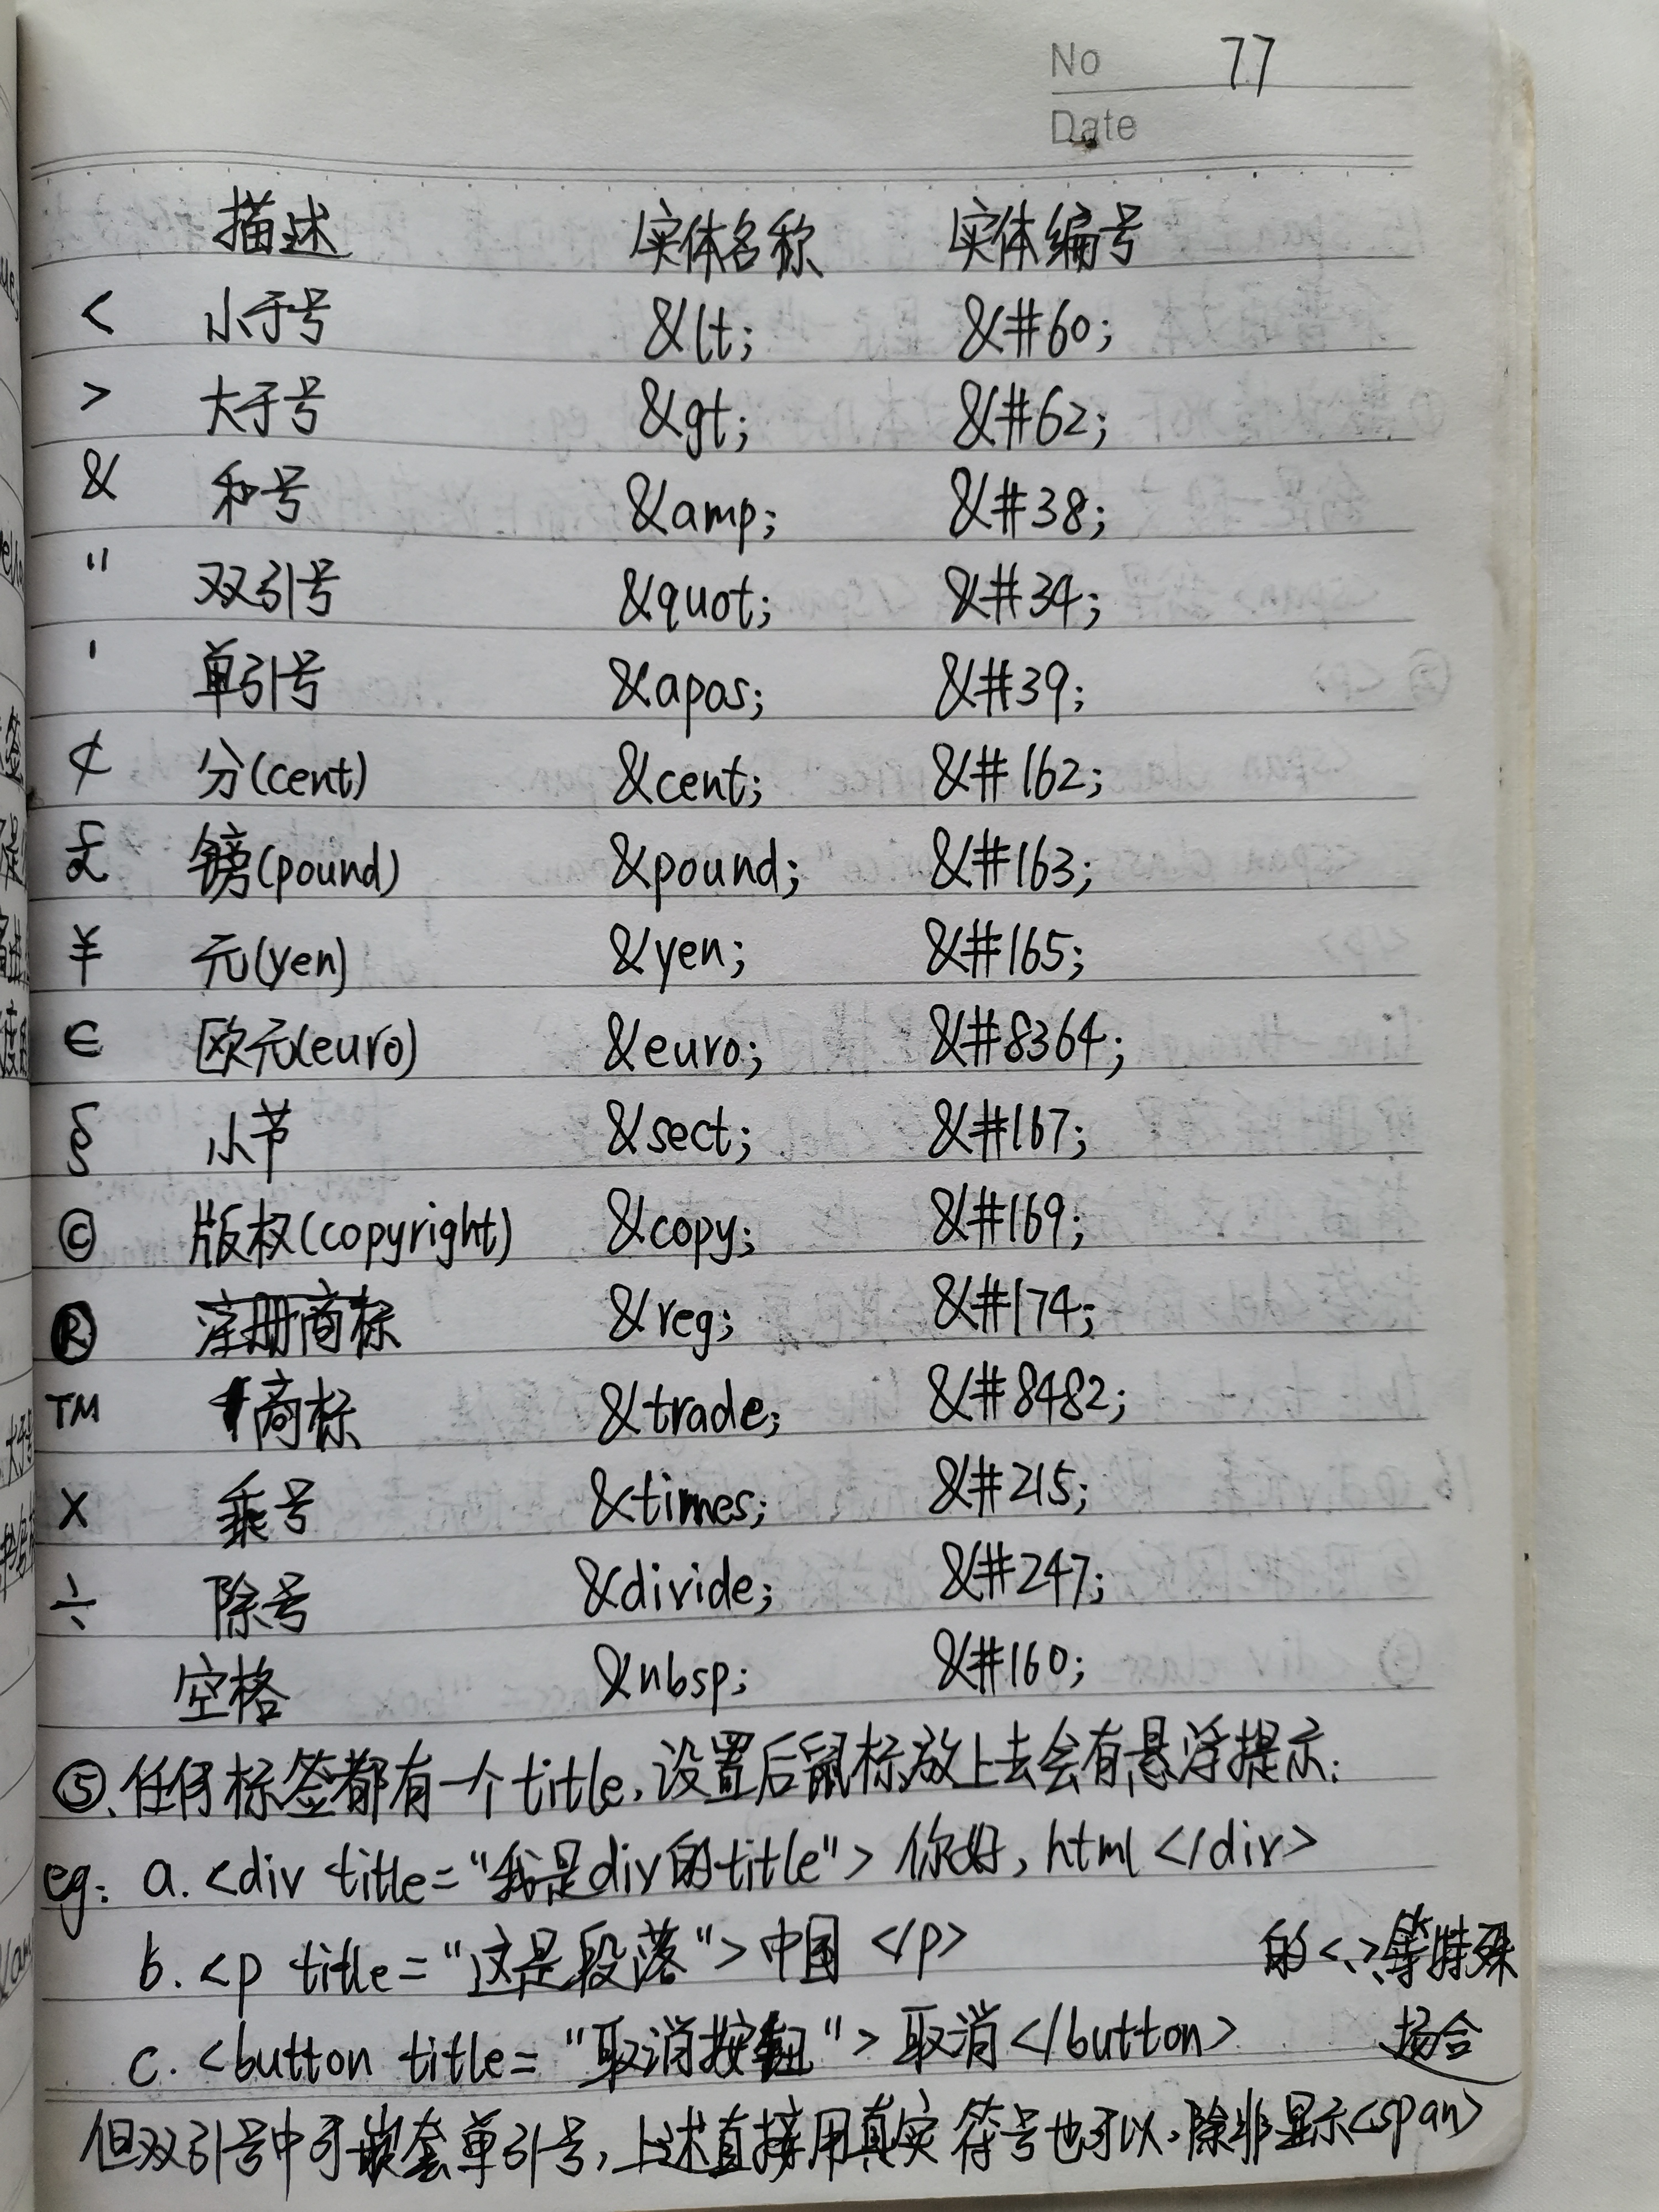 No 77
Date
描述 实体名称 实体编号
< 小于号 &lt; &#60;
> 大于号 &gt; &#62;
& 和号 &amp; &#38;
" 双引号 &quot; &#34;
' 单引号 &apos; &#39;
¢ 分(cent) &cent; &#162;
£ 镑(pound) &pound; &#163;
¥ 元(yen) &yen; &#165;
€ 欧元(euro) &euro; &#8364;
§ 小节 &sect; &#167;
© 版权(copyright) &copy; &#169;
® 注册商标 &reg; &#174;
TM 商标 &trade; &#8482;
× 乘号 &times; &#215;
÷ 除号 &divide; &#247;
空格 &nbsp; &#160;
⑤、任何标签都有一个title,设置后鼠标放上去会有悬浮提示:
eg: a. <div title="我是div的title">你好, html </div>
b. <p title="这是段落">中国 </p>
c. <button title="取消按钮">取消</button>
但双引号中可嵌套单引号,上述直接用真实符号也可以,除非显示<span>
的<、>等特殊
场合